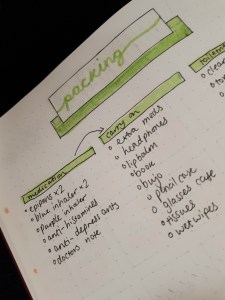 packing
medication
epipens x2
blue inhaler x2
purple inhaler
anti-histamines
anti-depressants
doctors note
carry on
extra meds
headphones
lipbalm
book
bujo
pencil case
glasses case
tissues
wet wipes